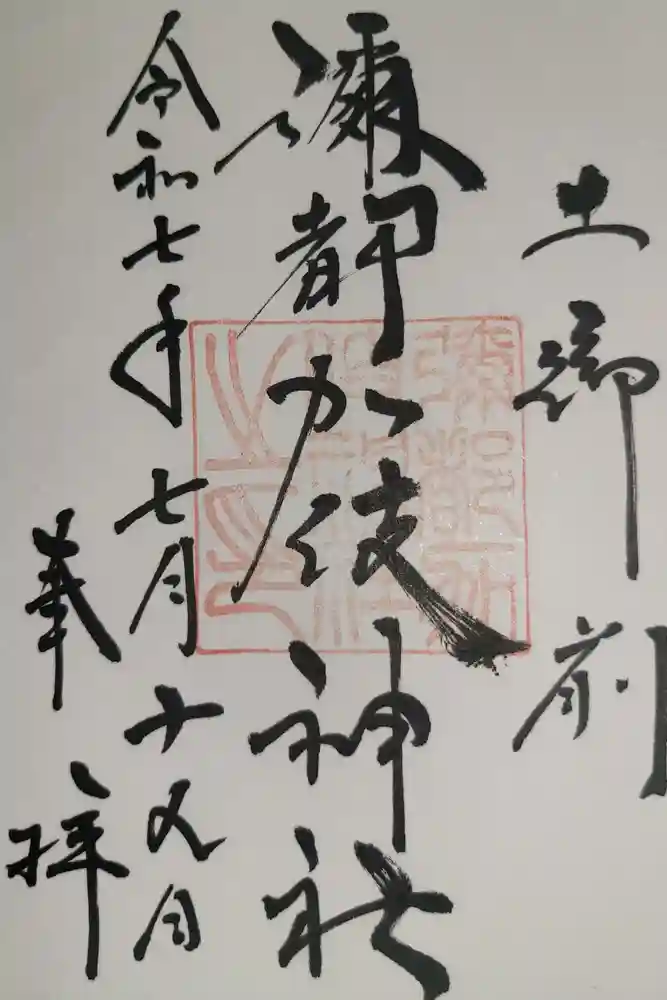 土御前
彌都加伎神社
令和七年七月十九日
奉拝